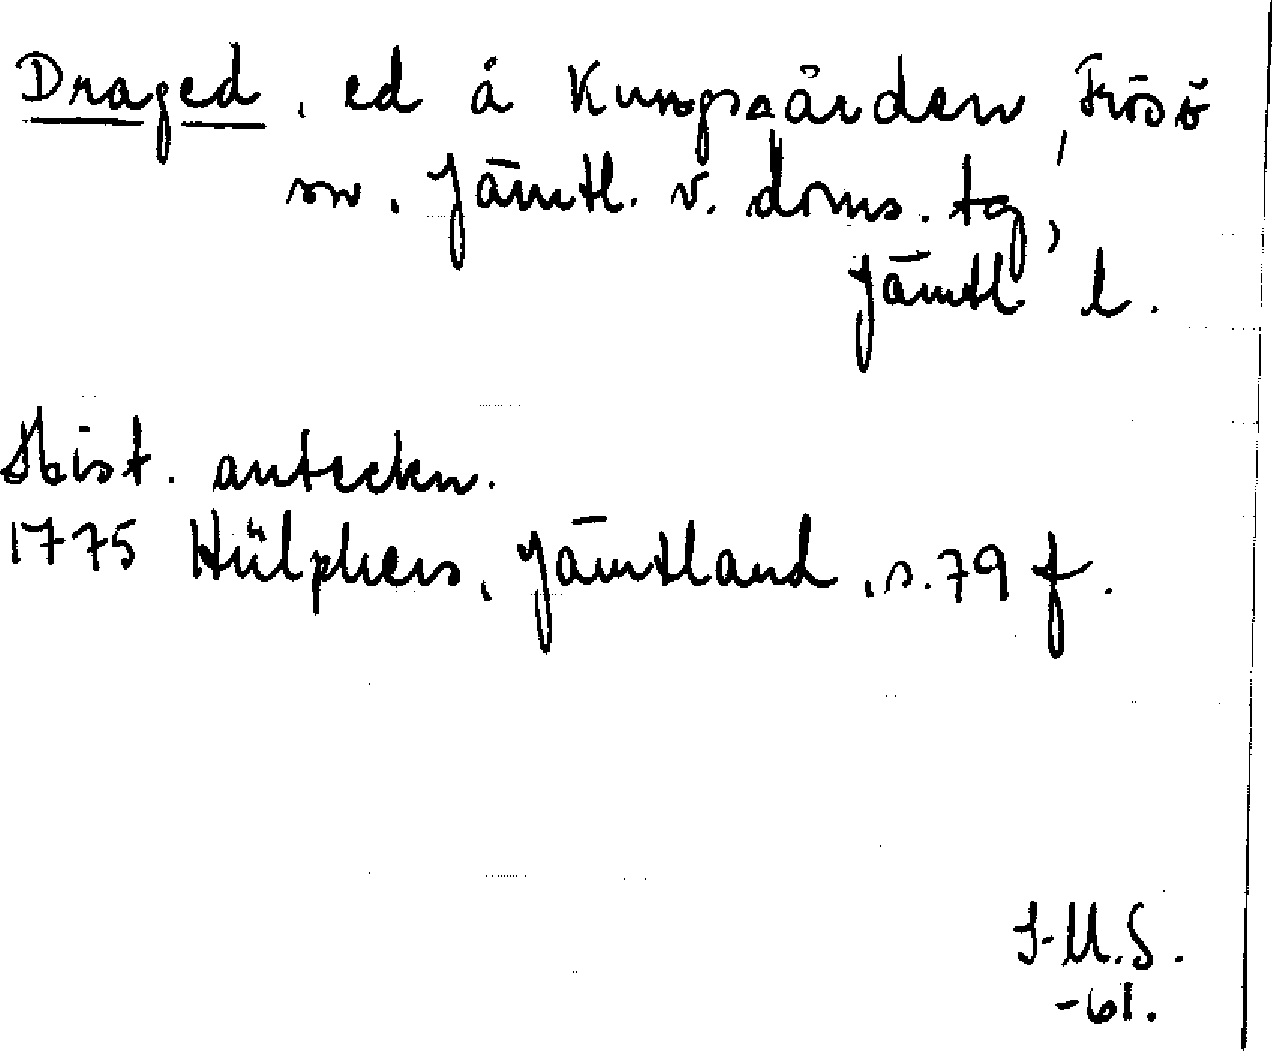 Draged, ed å Kungsgården, Frösö
sn. Jämtl. v. doms. tg,
Jämtl l.
Hist. anteckn.
1775 Hülphers, Jämtland, s. 79 f.
I-M.S.
-61.